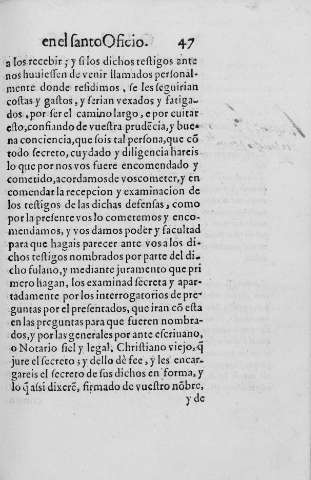 en el santo Oficio. 47
a los recebir; y si los dichos testigos ante
nos huuiessen de venir llamados personal-
mente donde residimos, se les seguirian
costas y gastos, y serian vexados y fatiga-
dos, por ser el camino largo, e por euitar
esto, confiando de vuestra prudēcia, y bue-
na conciencia, que sois tal persona, que cō
todo secreto, cuydado y diligencia hareis
lo que por nos vos fuere encomendado y
cometido, acordamos de vos cometer, y en
comendar la recepcion y examinacion de
los testigos de las dichas defensas, como
por la presente vos lo cometemos y enco-
mendamos, y vos damos poder y facultad
para que hagais parecer ante vos a los di-
chos testigos nombrados por parte del di-
cho fulano, y mediante juramento que pri
mero hagan, los examinad secreta y apar-
tadamente por los interrogatorios de pre-
guntas por el presentados, que iran cō esta
en las preguntas para que fueren nombra-
dos, y por las generales por ante escriuano,
o Notario fiel y legal, Christiano viejo, q̄
jure el secreto; y dello dè fee, y les encar-
gareis el secreto de sus dichos en forma, y
lo q̄ assi dixerē, firmado de vuestro nōbre,
y de